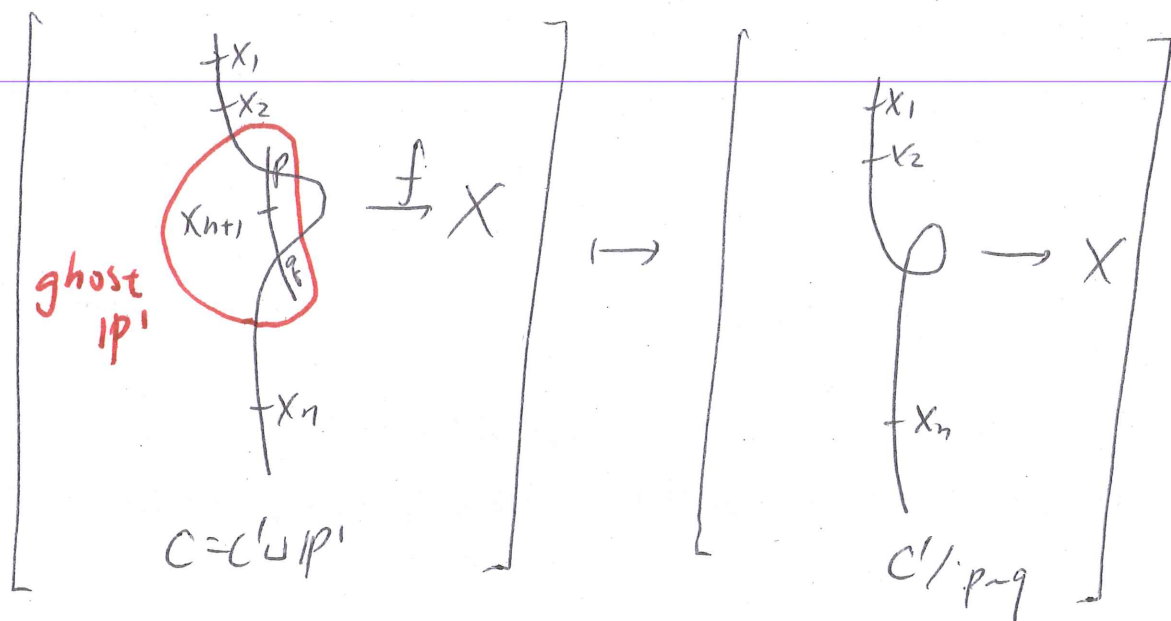 x₁
x₂
p
xₙ₊₁
q
xₙ
f
X
ghost
ℙ¹
C = C' ⊔ ℙ¹
↦
x₁
x₂
xₙ
→ X
C'/p~q